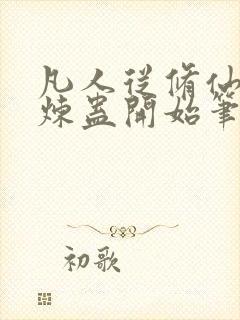 凡人從脩仙
煉蠱開始筆
初歌